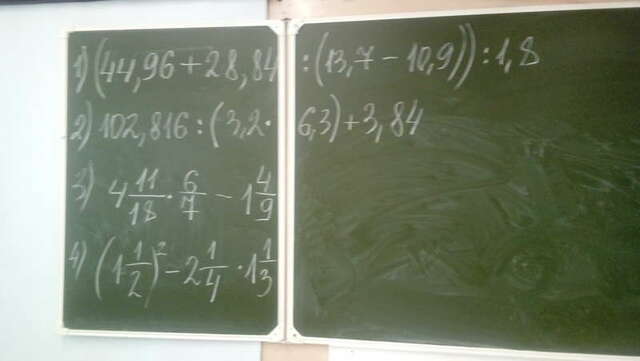 1) (44,96 + 28,84 : (13,7 − 10,9)) : 1,8
2) 102,816 : (3,2 · 6,3) + 3,84
3) 4 11/18 · 6/7 − 1 4/9
4) (1 1/2)² − 2 1/4 · 1 1/3